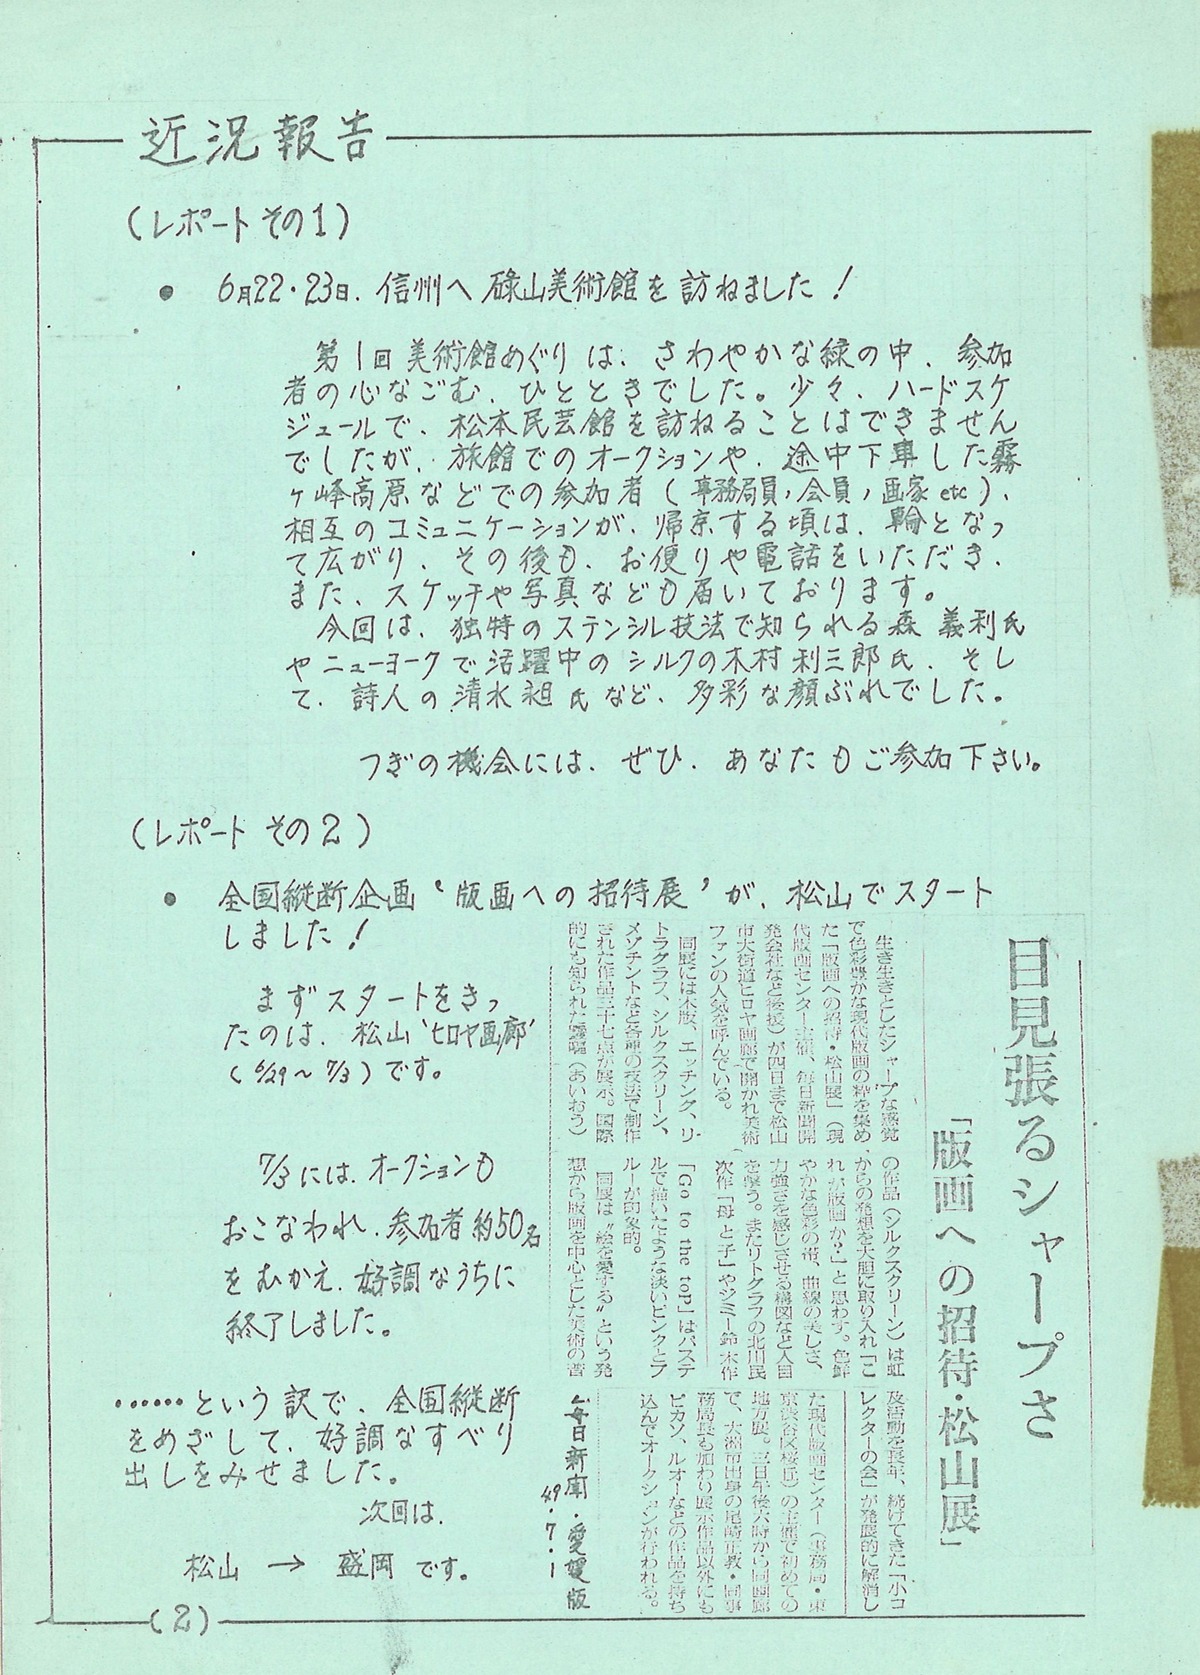 近況報告
(レポート その1)
● 6月22・23日、信州へ 碌山美術館を訪ねました！
第1回 美術館めぐりは、さわやかな緑の中、参加
者の心なごむ、ひとときでした。少々、ハードスケ
ジュールで、松本民芸館を訪ねることはできません
でしたが、旅館でのオークションや、途中下車した霧
ヶ峰高原などでの参加者（事務局員，会員，画家etc）、
相互のコミュニケーションが、帰京する頃は、輪となっ
て広がり、その後も、お便りや電話をいただき、
また、スケッチや写真なども届いております。
今回は、独特のステンシル技法で知られる森 義利氏
やニューヨークで活躍中のシルクの木村利三郎氏、そし
て、詩人の清水昶氏など、多彩な顔ぶれでした。
つぎの機会には、ぜひ、あなたもご参加下さい。
(レポート その2)
● 全国縦断企画‘版画への招待展’が、松山でスタート
しました！
まずスタートをきっ
たのは、松山‘ヒロヤ画廊’
(6/29〜7/3)です。
7/3には、オークションも
おこなわれ、参加者約50名
をむかえ、好調なうちに
終了しました。
……という訳で、全国縦断
をめざして、好調なすべり
出しをみせました。
次回は、
松山 → 盛岡 です。
目見張るシャープさ
「版画への招待・松山展」
生き生きとしたシャープな感覚
で色彩豊かな現代版画の粋を集め
た「版画への招待・松山展」（現
代版画センター主催、毎日新聞開
発会社など後援）が四日まで松山
市大街道ヒロヤ画廊で開かれ美術
ファンの人気を呼んでいる。
同展には木版、エッチング、リ
トグラフ、シルクスクリーン、
メゾチントなど各種の技法で制作
された作品三十七点が展示。国際
的にも知られた靉嘔（あいおう）
の作品（シルクスクリーン）は虹
からの発想を大胆に取り入れ「こ
れが版画か？」と思わす。色鮮
やかな色彩の帯、曲線の美しさ、
力強さを感じさせる構図など人目
を奪う。またリトグラフの北川民
次作「母と子」やジミー鈴木作
「Go to the top」はパステ
ルで描いたような淡いピンクとブ
ルーが印象的。
同展は“絵を愛する”という発
想から版画を中心とした美術の普
及活動を長年、続けてきた「小コ
レクターの会」が発展的に解消し
た現代版画センター（事務局・東
京渋谷区桜丘）の主催で初めての
地方展。三日午後六時から同画廊
で、大洲市出身の尾崎正教・同事
務局長も加わり展示作品以外にも
ピカソ、ルオーなどの作品を持ち
込んでオークションが行われる。
毎日新聞・愛媛版
49・7・1
(2)